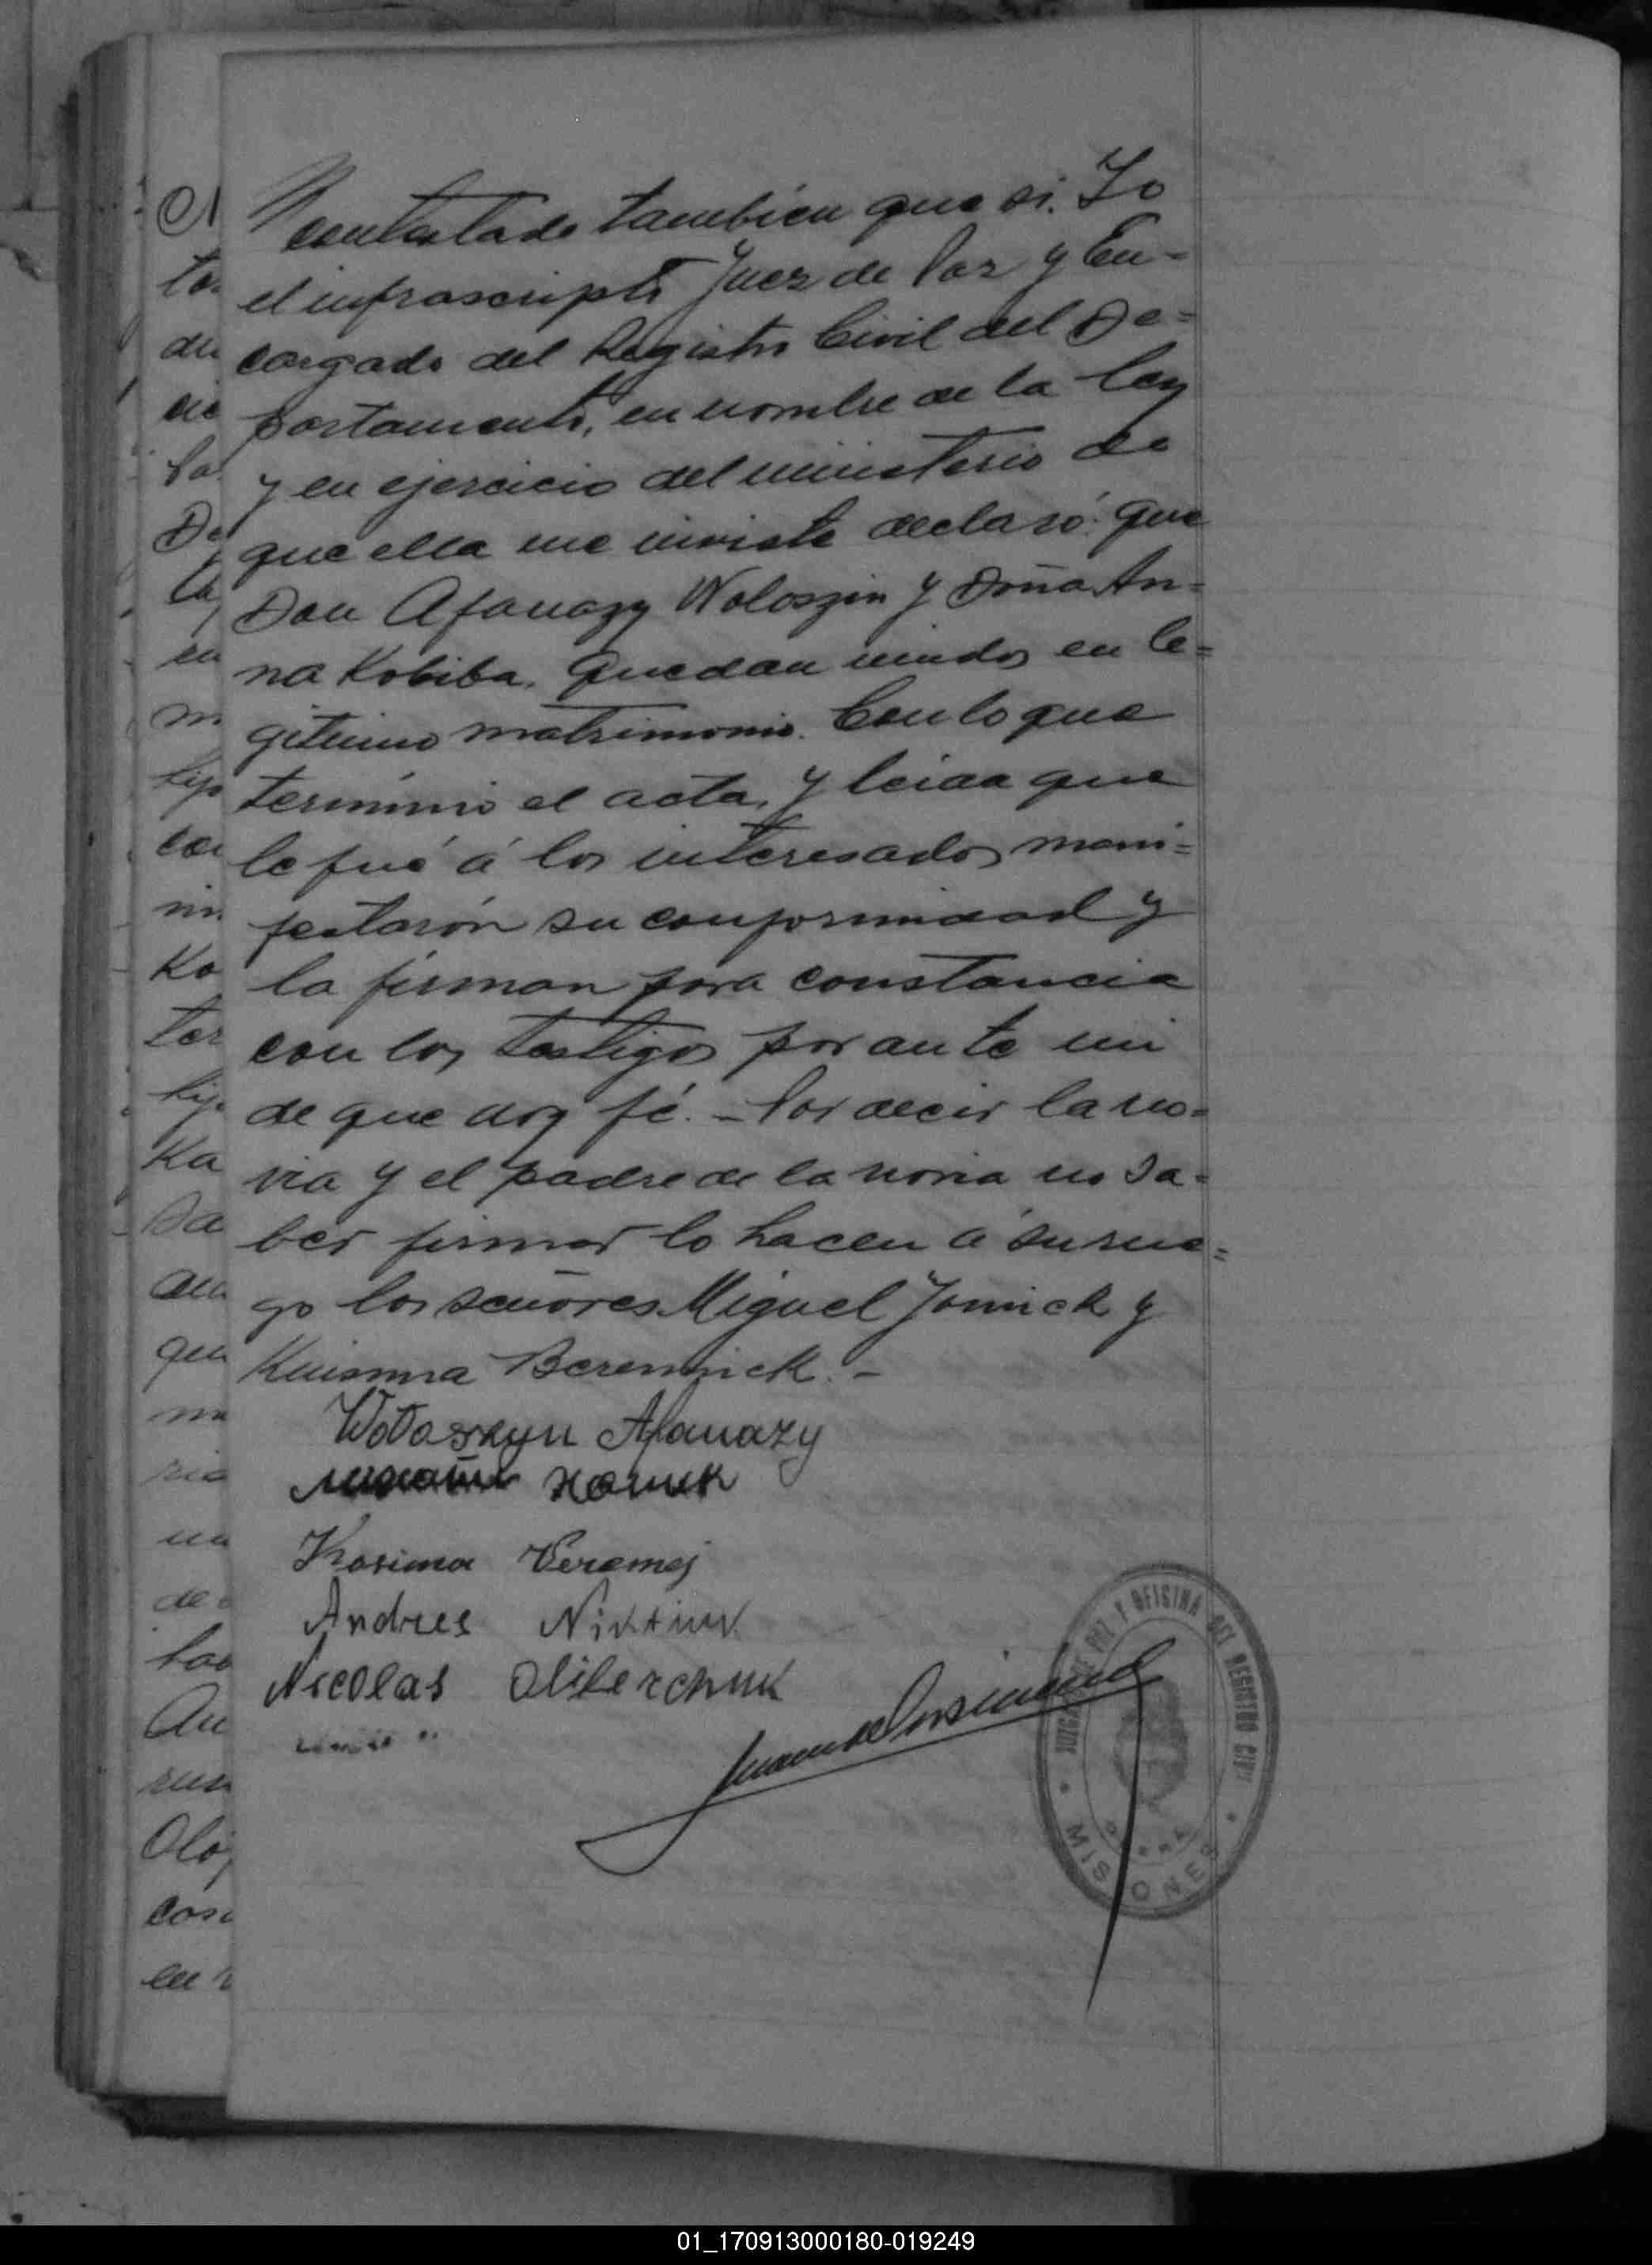 contestado tambien que si. Yo
el infrascripto Juez de Paz y En=
cargado del Registro Civil del De=
partamento, en nombre de la Ley
y en ejercicio del ministerio de
que ella me inviste declaró: que
Don Afanazy Woloszin y Doña An=
na Kobiba. quedan unidos en le=
gitimo matrimonio. Con lo que
terminó el acta, y leida que
le fué á los interesados mani=
festarón su conformidad y
la firman para constancia
con los testigos por ante mi
de que doy fé. - Por decir la no=
via y el padre de la novia no sa=
ber firmar lo hacen á su rue=
go los señores Miguel Jomick y
Beremnick. -
Wołoszyn Afanazy
Kosima Veremej
Andres Niktiuk
Nicolas
JUZGADO DE PAZ Y OFISINA DEL REGISTRO CIVIL
MISIONES
01_170913000180-019249
Ko
ter
Ka
que
de